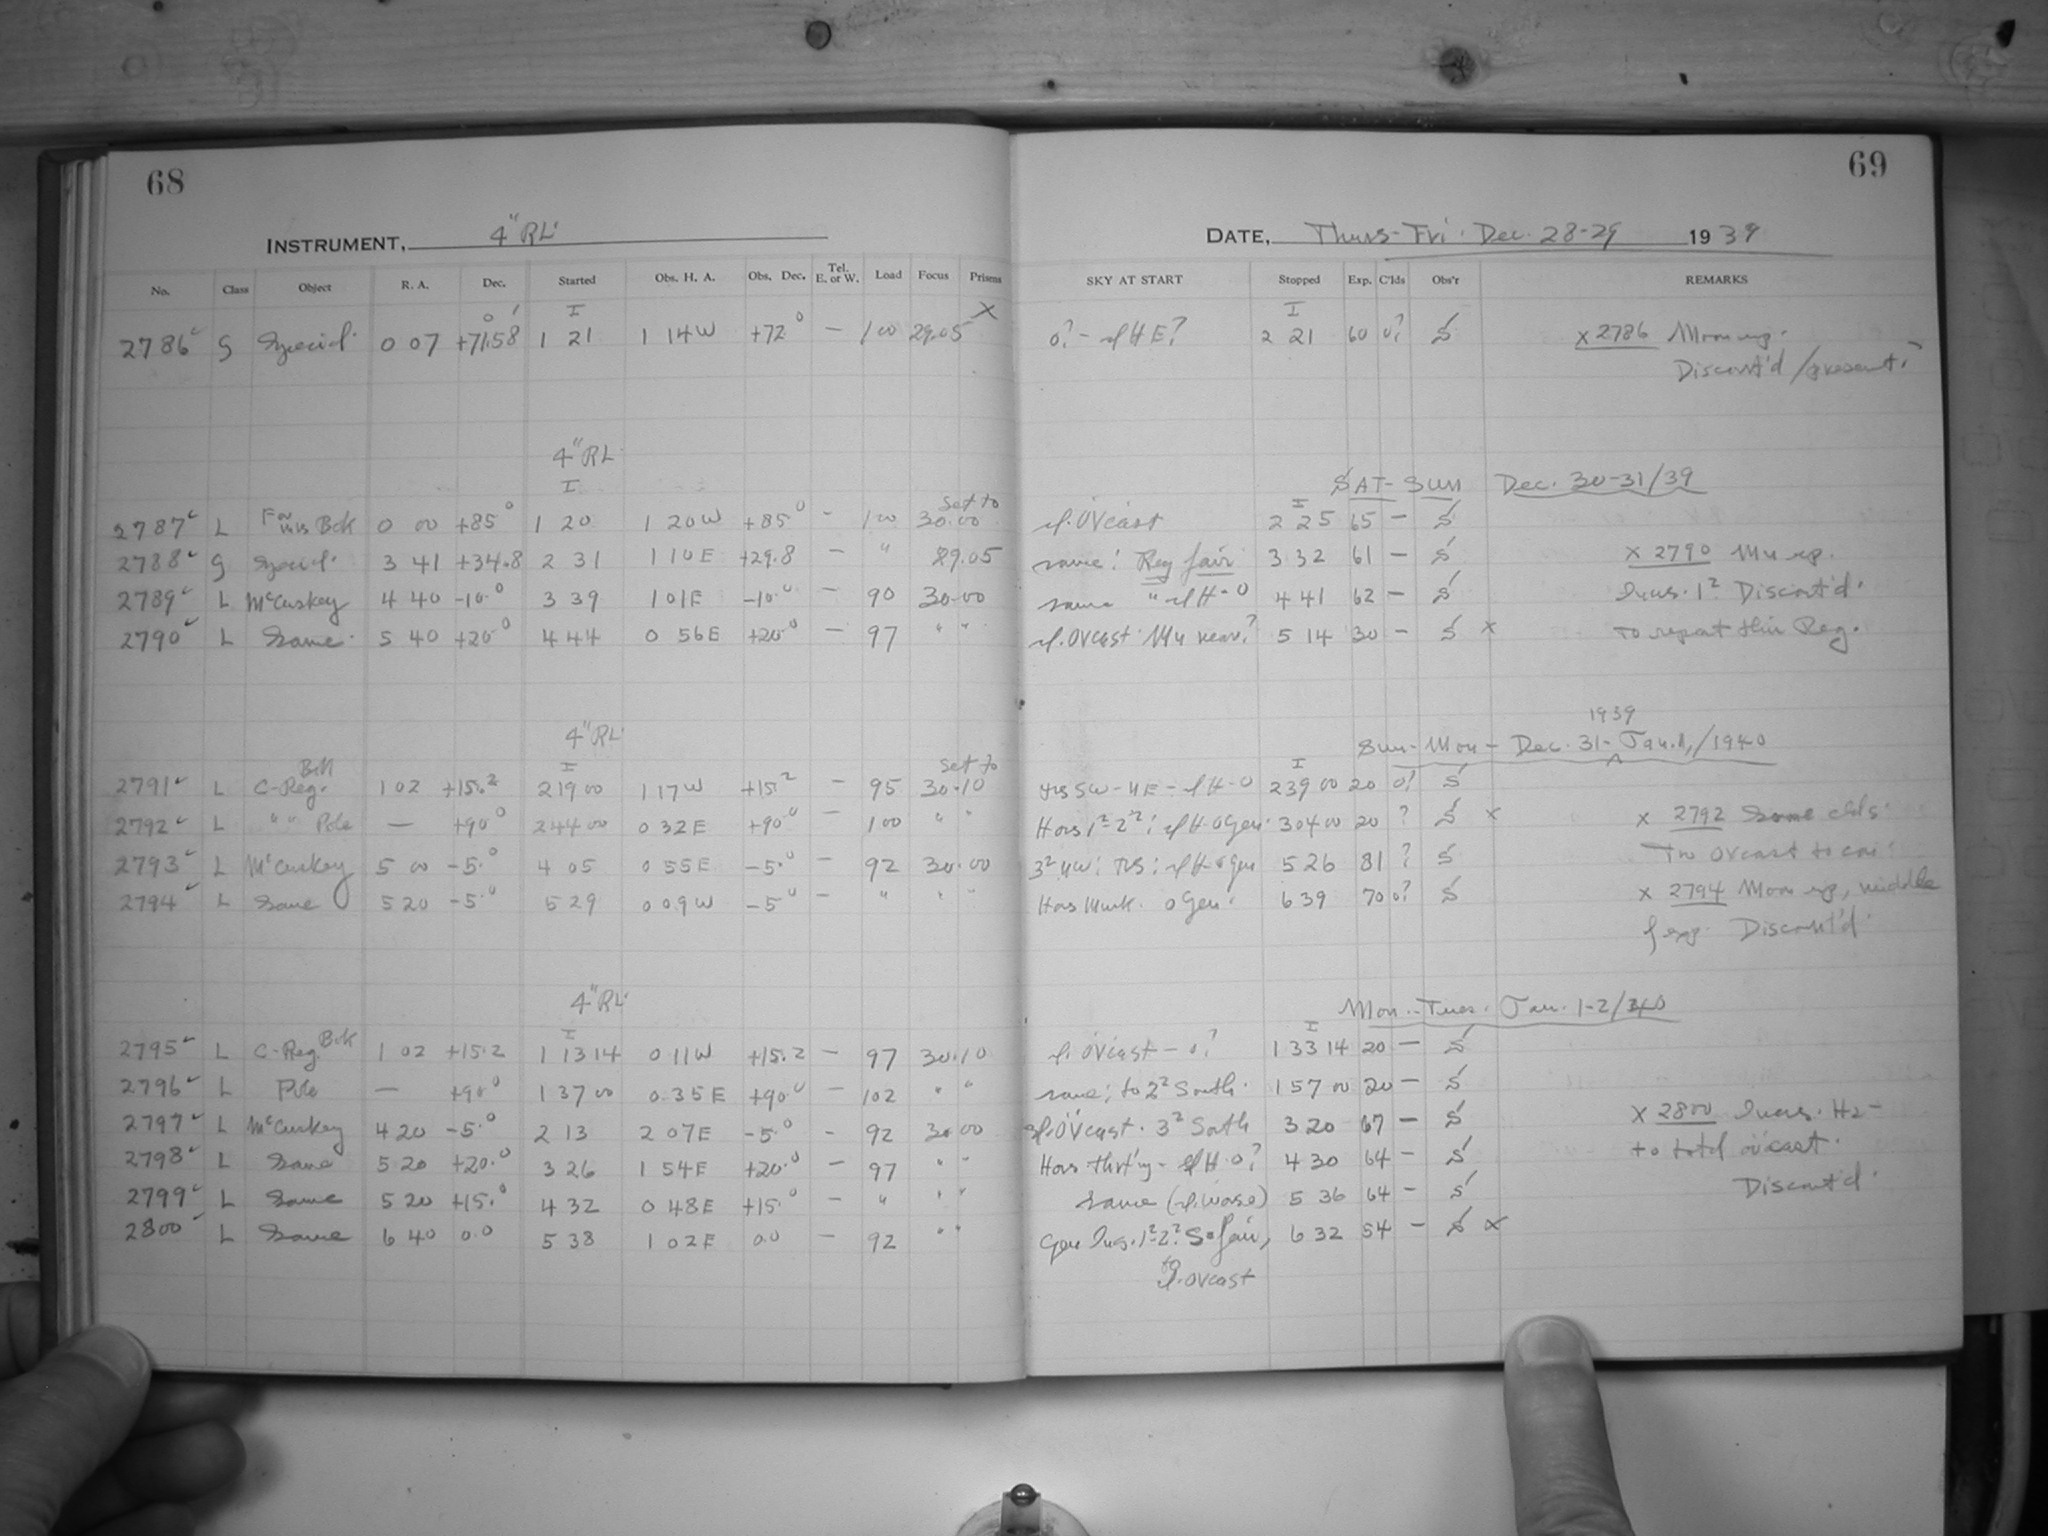 68
INSTRUMENT, 4" RL.
No. Class Object R. A. Dec. Started Obs. H. A. Obs. Dec. Tel. E. or W. Load Focus Prisms
2786 G Special. 0 07 +71.58 1 21 1 14W +72° – 100 29.05 X
4" RL
2787 L Bok 0 00 +85° 1 20 1 20W +85° – 100 Set to 30.00
2788 G Special. 3 41 +34.8 2 31 1 10E +29.8 – " 29.05
2789 L McCuskey 4 40 -10.° 3 39 1 01E -10.° – 90 30.00
2790 L Same. 5 40 +20° 4 44 0 56E +20° – 97 " "
4" RL
2791 L C-Reg. Bok 1 02 +15.2 2 19 00 1 17W +15.2 – 95 Set to 30.10
2792 L " " Pole — +90° 2 44 00 0 32E +90.° – 100 " "
2793 L McCuskey 5 00 -5.° 4 05 0 55E -5.° – 92 30.00
2794 L Same 5 20 -5.° 5 29 0 09W -5° – " " "
4" RL.
2795 L C-Reg. Bok 1 02 +15.2 1 13 14 0 11W +15.2 – 97 30.10
2796 L Pole — +90° 1 37 00 0 35E +90.° – 102 " "
2797 L McCuskey 4 20 -5.° 2 13 2 07E -5.° – 92 30.00
2798 L Same 5 20 +20.° 3 26 1 54E +20.° – 97 " "
2799 L Same 5 20 +15.° 4 32 0 48E +15.° – " " "
2800 L Same 6 40 0.0 5 38 1 02E 0.0 – 92 " "
69
DATE, Thurs-Fri. Dec. 28-29 1939
SKY AT START Stopped Exp. C'lds Obs'r REMARKS
0? - H E? 2 21 60 0? S x 2786 Moon up.
Discont'd / present?
SAT-SUN Dec. 30-31/39
sl. ovcast 2 25 65 – S
same: Reg fair 3 32 61 – S x 2790 up.
same " H-0 4 41 62 – S 1² Discont'd.
sl. ovcast near? 5 14 30 – S x To repeat this Reg.
1939
Sun-Mon- Dec. 31-Jan. 1,/1940
SW - H-0 2 39 00 20 0? S
1²-2²: H-0 Gen. 3 04 00 20 ? S x x 2792 Some clds
3² H-0 Gen 5 26 81 ? S ovcast
0 Gen. 6 39 70 0? S x 2794 Moon up, middle
of exp. Discont'd
Mon.-Tues. Jan. 1-2/40
sl. ovcast - 0? 1 33 14 20 – S
same; to 2² South. 1 57 00 20 – S
sl. ovcast. 3² South 3 20 67 – S x 2800
H-0? 4 30 64 – S to total ovcast.
same (sl. worse) 5 36 64 – S Discont'd.
Gen 1²-2² S. fair, 6 32 54 – S x
to sl. ovcast